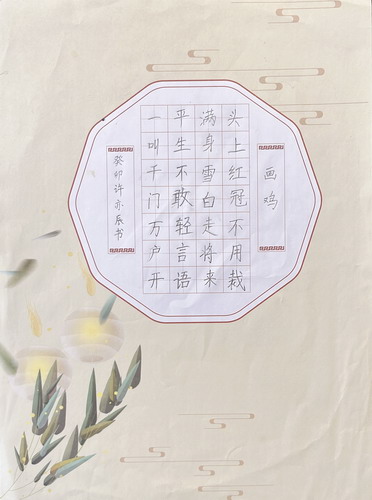 画鸡
头上红冠不用裁
满身雪白走将来
平生不敢轻言语
一叫千门万户开
癸卯许亦辰书